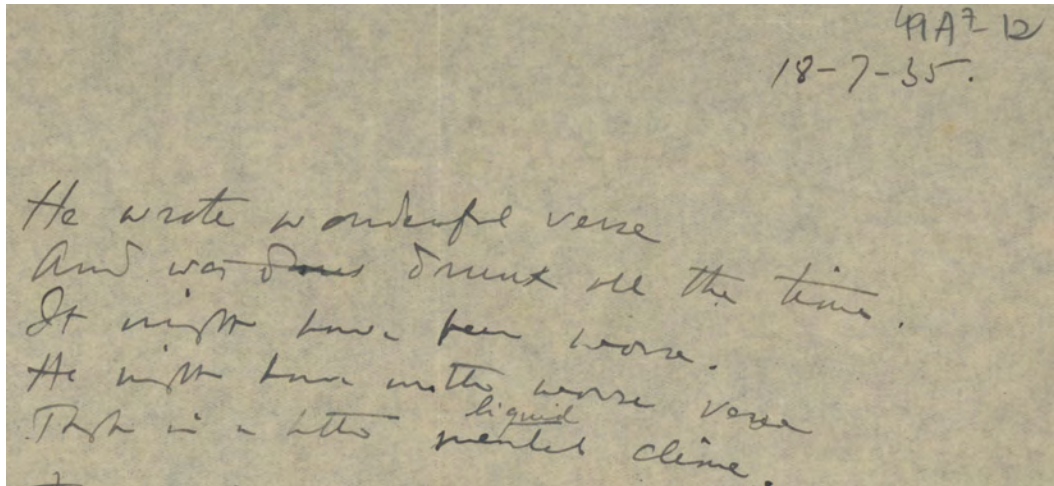 49A7-12
18-7-35.
He wrote wonderful verse
And was drunk all the time.
It might have been worse.
He might have written worse verse
liquid
Though in a better mental clime.